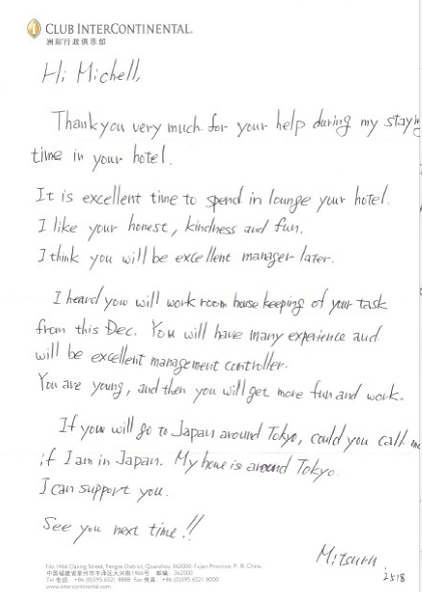 CLUB INTERCONTINENTAL.
洲际行政俱乐部
Hi Michell,
Thank you very much for your help during my staying
time in your hotel.
It is excellent time to spend in lounge your hotel.
I like your honest, kindness and fun.
I think you will be excellent manager later.
I heard you will work room house keeping of your task
from this Dec. You will have many experience and
will be excellent management controller.
You are young, and then you will get more fun and work.
If you will go to Japan around Tokyo, could you call me
if I am in Japan. My home is around Tokyo.
I can support you.
See you next time!!
Mitsuru.
2518
No.1466 Daxing Street, Fengze District, Quanzhou 362000, Fujian Province, P. R. China
中国福建省泉州市丰泽区大兴街1466号 邮编: 362000
Tel 电话: +86 (0)595 6521 8888 Fax 传真: +86 (0)595 6521 8000
www.intercontinental.com